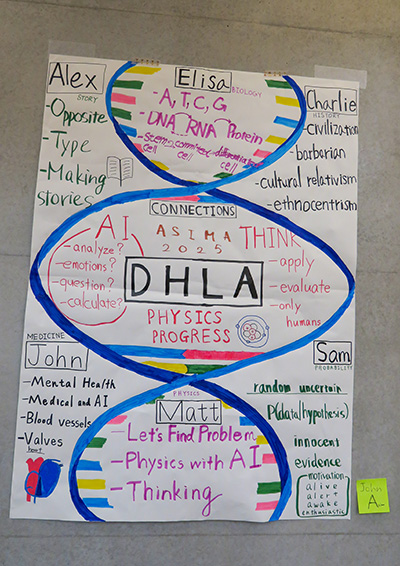 Alex
STORY
-Opposite
-Type
-Making
stories
Elisa
BIOLOGY
-A,T,C,G
-DNA RNA Protein
-Stem committed differentiated
cell cell cell
Charlie
HISTORY
-civilization
-barbarian
-cultural relativism
-ethnocentrism
CONNECTIONS
ASIMA
2025
AI
-analyze?
-emotions?
-question?
-calculate?
THINK
-apply
-evaluate
-only
humans
DHLA
PHYSICS
PROGRESS
MEDICINE
John
-Mental Health
-Medical and AI
-Blood vessels
-Valves
heart
PHYSICS
Matt
-Let's Find Problem
-Physics with AI
-Thinking
Sam
PROBABILITY
random uncertain
P(data/hypothesis)
innocent
evidence
motivation
alive
alert
awake
enthusiastic
John
A